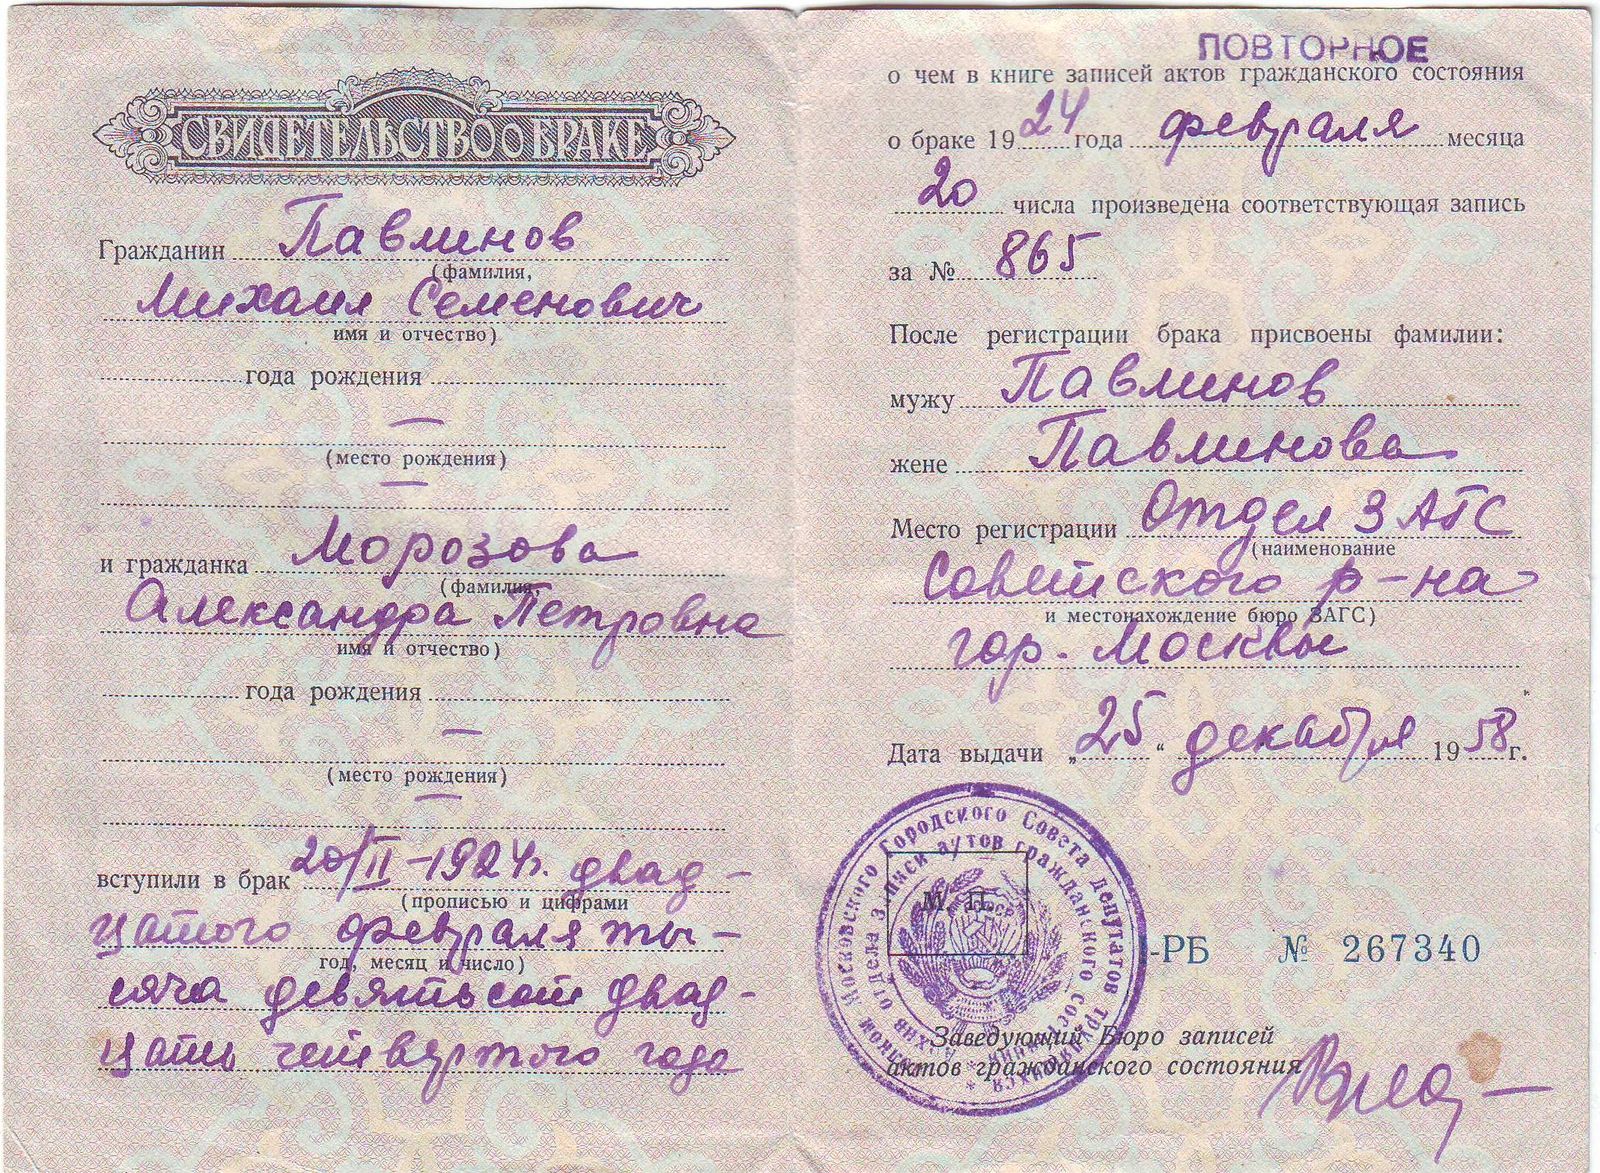 СВИДЕТЕЛЬСТВО о БРАКЕ
Гражданин Павлинов
(фамилия,
Михаил Семенович
имя и отчество)
года рождения
—
(место рождения)
—
и гражданка Морозова
(фамилия,
Александра Петровна
имя и отчество)
года рождения
—
(место рождения)
—
вступили в брак 20/II-1924г. двад-
(прописью и цифрами
цатого февраля ты-
год, месяц и число)
сяча девятьсот двад-
цать четвертого года
ПОВТОРНОЕ
о чем в книге записей актов гражданского состояния
о браке 1924 года февраля месяца
20 числа произведена соответствующая запись
за № 865
После регистрации брака присвоены фамилии:
мужу Павлинов
жене Павлинова
Место регистрации Отдел ЗАГС
(наименование
Советского р-на
и местонахождение бюро ЗАГС)
гор. Москвы
Дата выдачи „25“ декабря 1958 г.
Московского Городского Совета депутатов трудящихся
актов гражданского состояния
М. П.
СССР
I-РБ № 267340
Заведующий Бюро записей
актов гражданского состояния